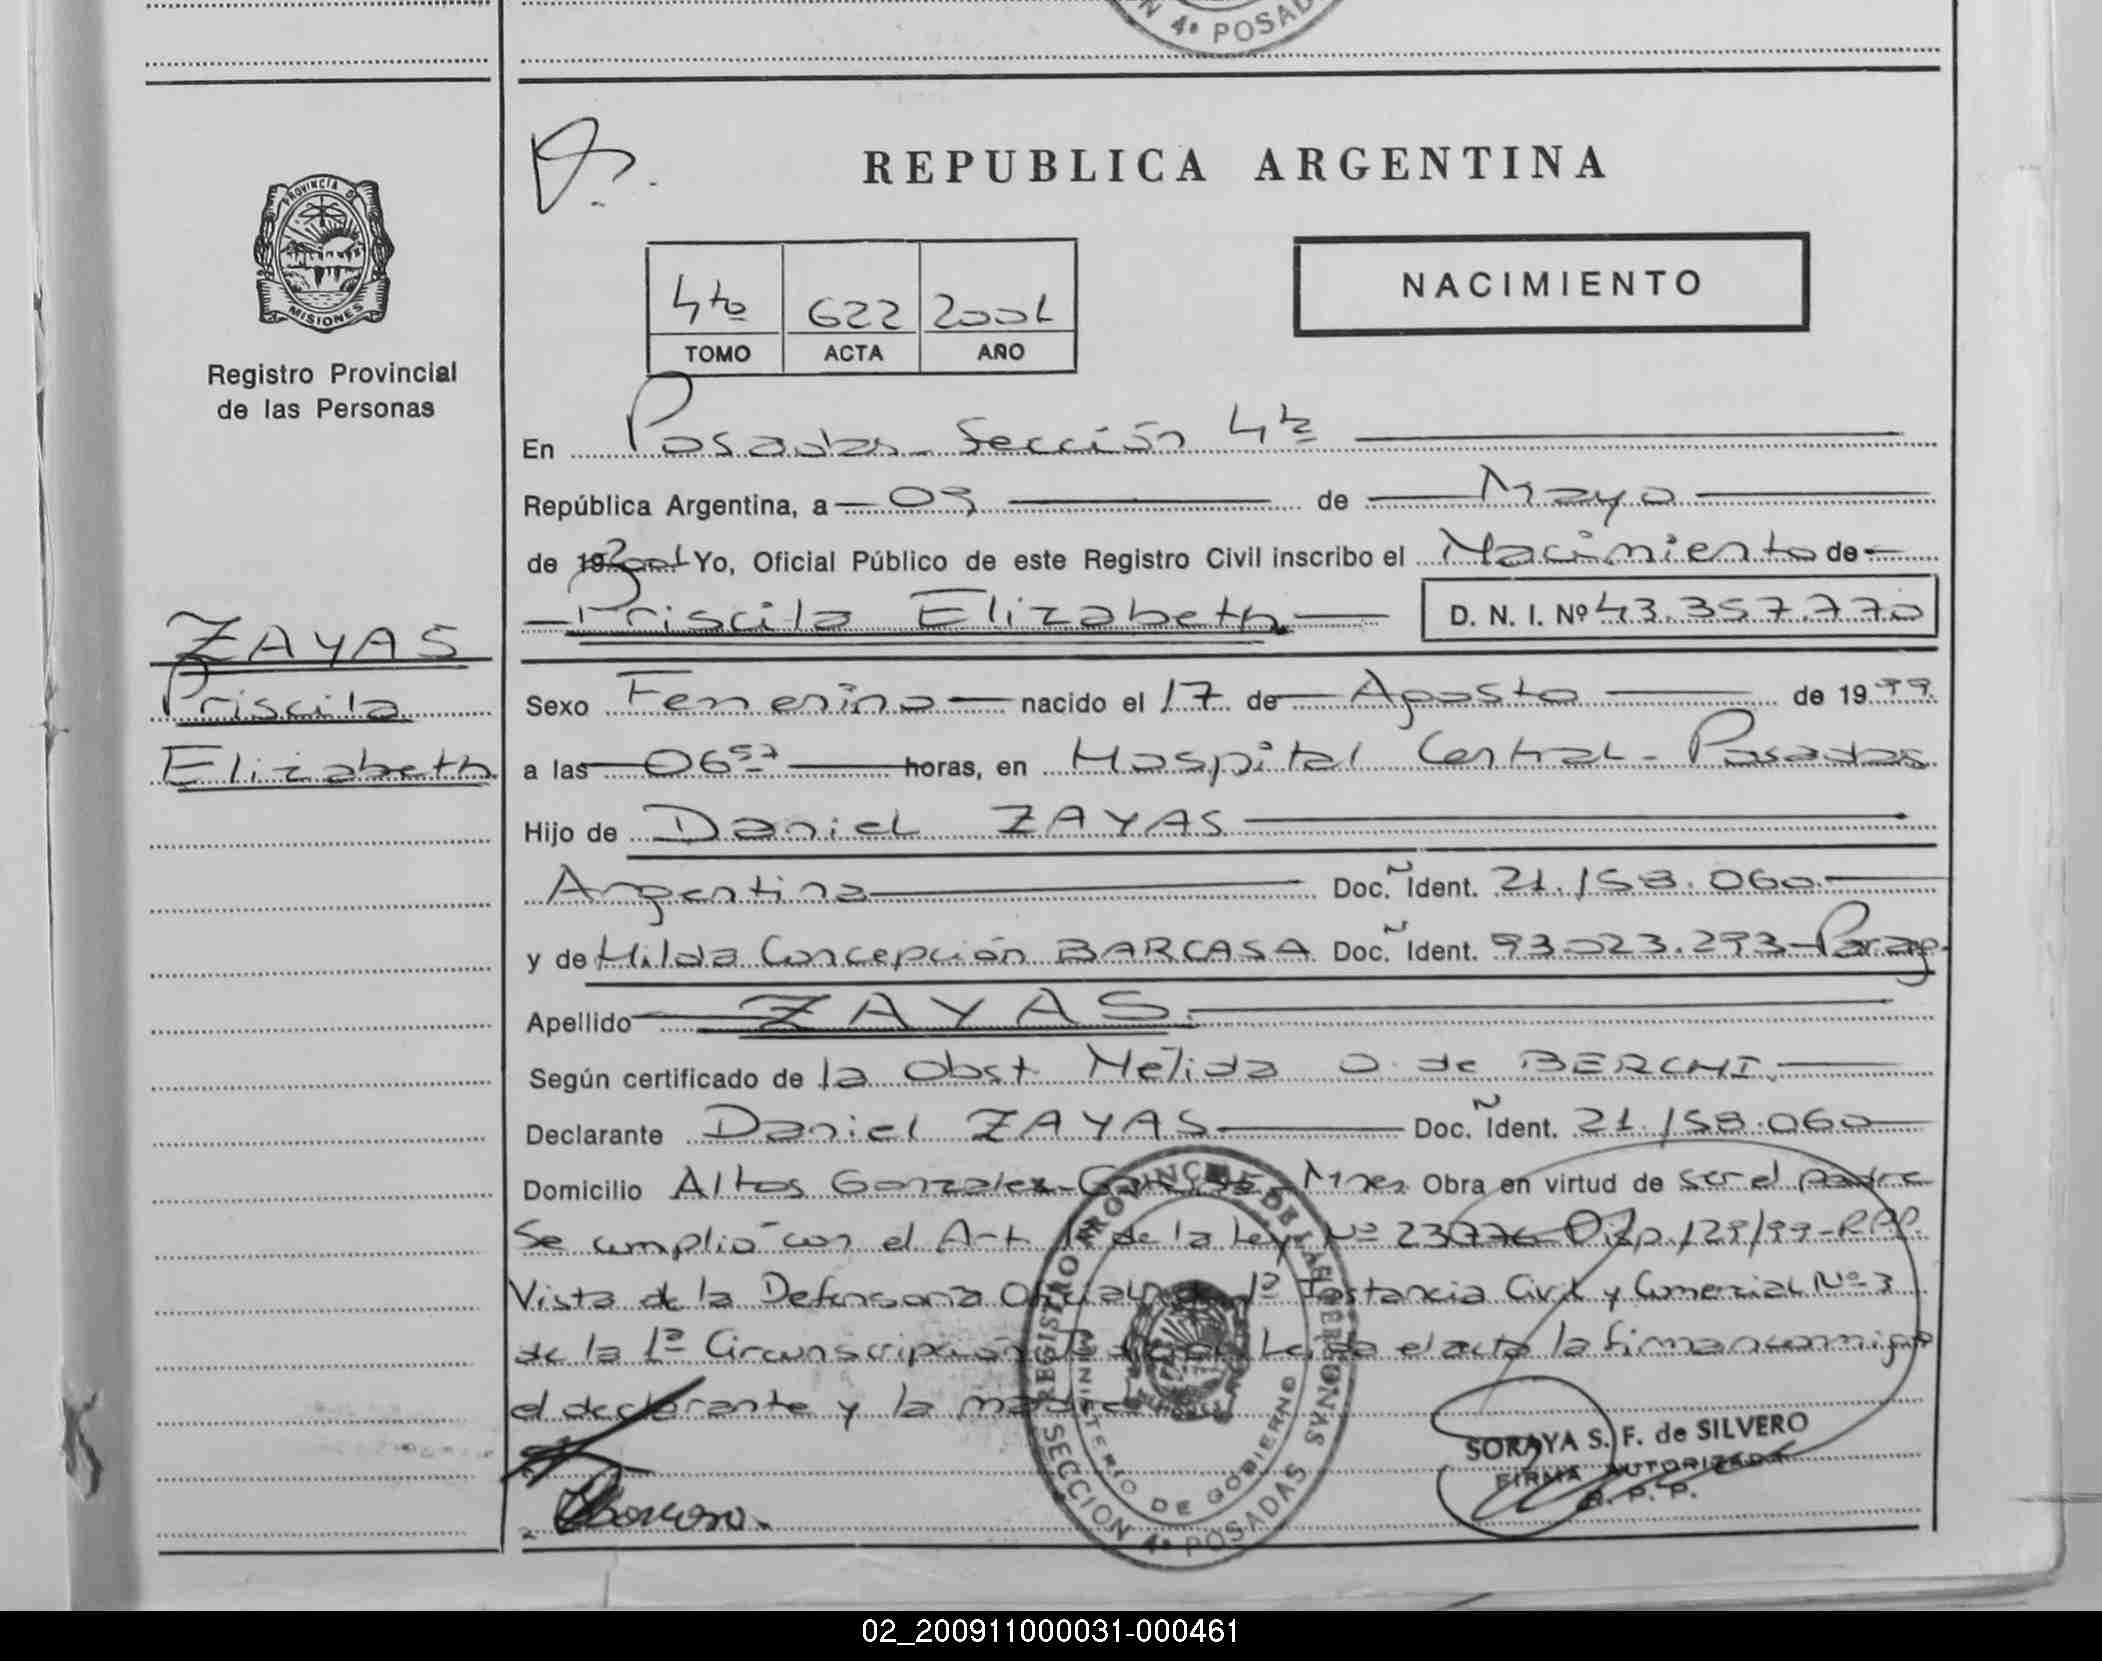 N 4ª POSAD
REPUBLICA ARGENTINA
PROVINCIA DE
MISIONES
Registro Provincial
de las Personas
4to 622 2001
TOMO ACTA AÑO
NACIMIENTO
En Posadas Sección 4ta
República Argentina, a 03 de Mayo
de 19 2001 Yo, Oficial Público de este Registro Civil inscribo el Nacimiento de
Priscila Elizabeth D. N. I. Nº 43.357.770
ZAYAS
Priscila
Elizabeth
Sexo Femenino nacido el 17 de Agosto de 1999
a las 06 57 horas, en Hospital Central - Posadas
Hijo de Daniel ZAYAS
Argentina Doc. Ident. 21.158.060
y de Hilda Concepción BARCASA Doc. Ident. 93.023.293 - Parag.
Apellido ZAYAS.
Según certificado de la Obst. Nélida O. de BERCHI.
Declarante Daniel ZAYAS Doc. Ident. 21.158.060
Domicilio Altos Gonzalez - Mnes Obra en virtud de ser el padre
Se cumplió con el Art. de la Ley Nº 23776 Disp. 129/99 - RPP.
Vista de la Defensoria Oficial de 1ª Instancia Civil y Comercial Nº 3
de la 1ª Circunscripción Leída el acta la firman conmigo
el declarante y la madre
REGISTRO PROVINCIAL DE LAS PERSONAS
MINISTERIO DE GOBIERNO
SECCION 4ª POSADAS
SORAYA S. F. de SILVERO
FIRMA AUTORIZADA
R. P. P.
02_200911000031-000461